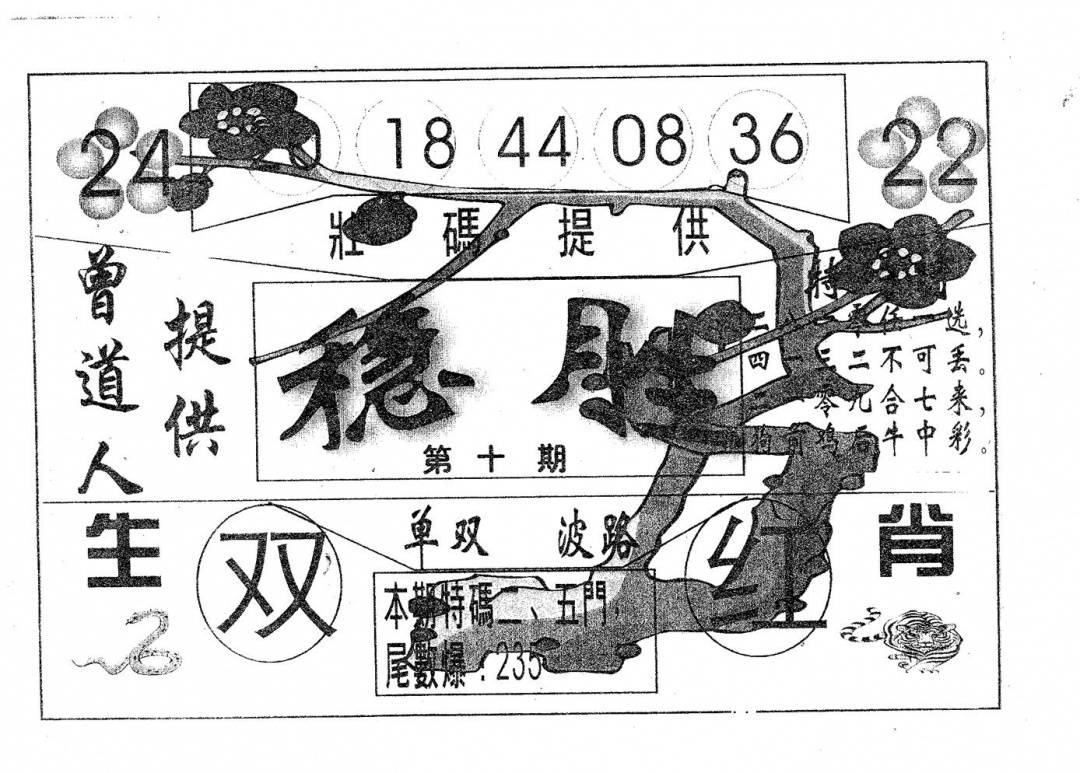 24
18 44 08 36
22
壯碼提供
曾道人
提供
稳胜
第十期
特
选，
四一三二不可丢。
零九合七来，
狗前鸡后牛中彩。
生
双
单双 波路
红
肖
本期特碼二、五門，
尾數爆：235